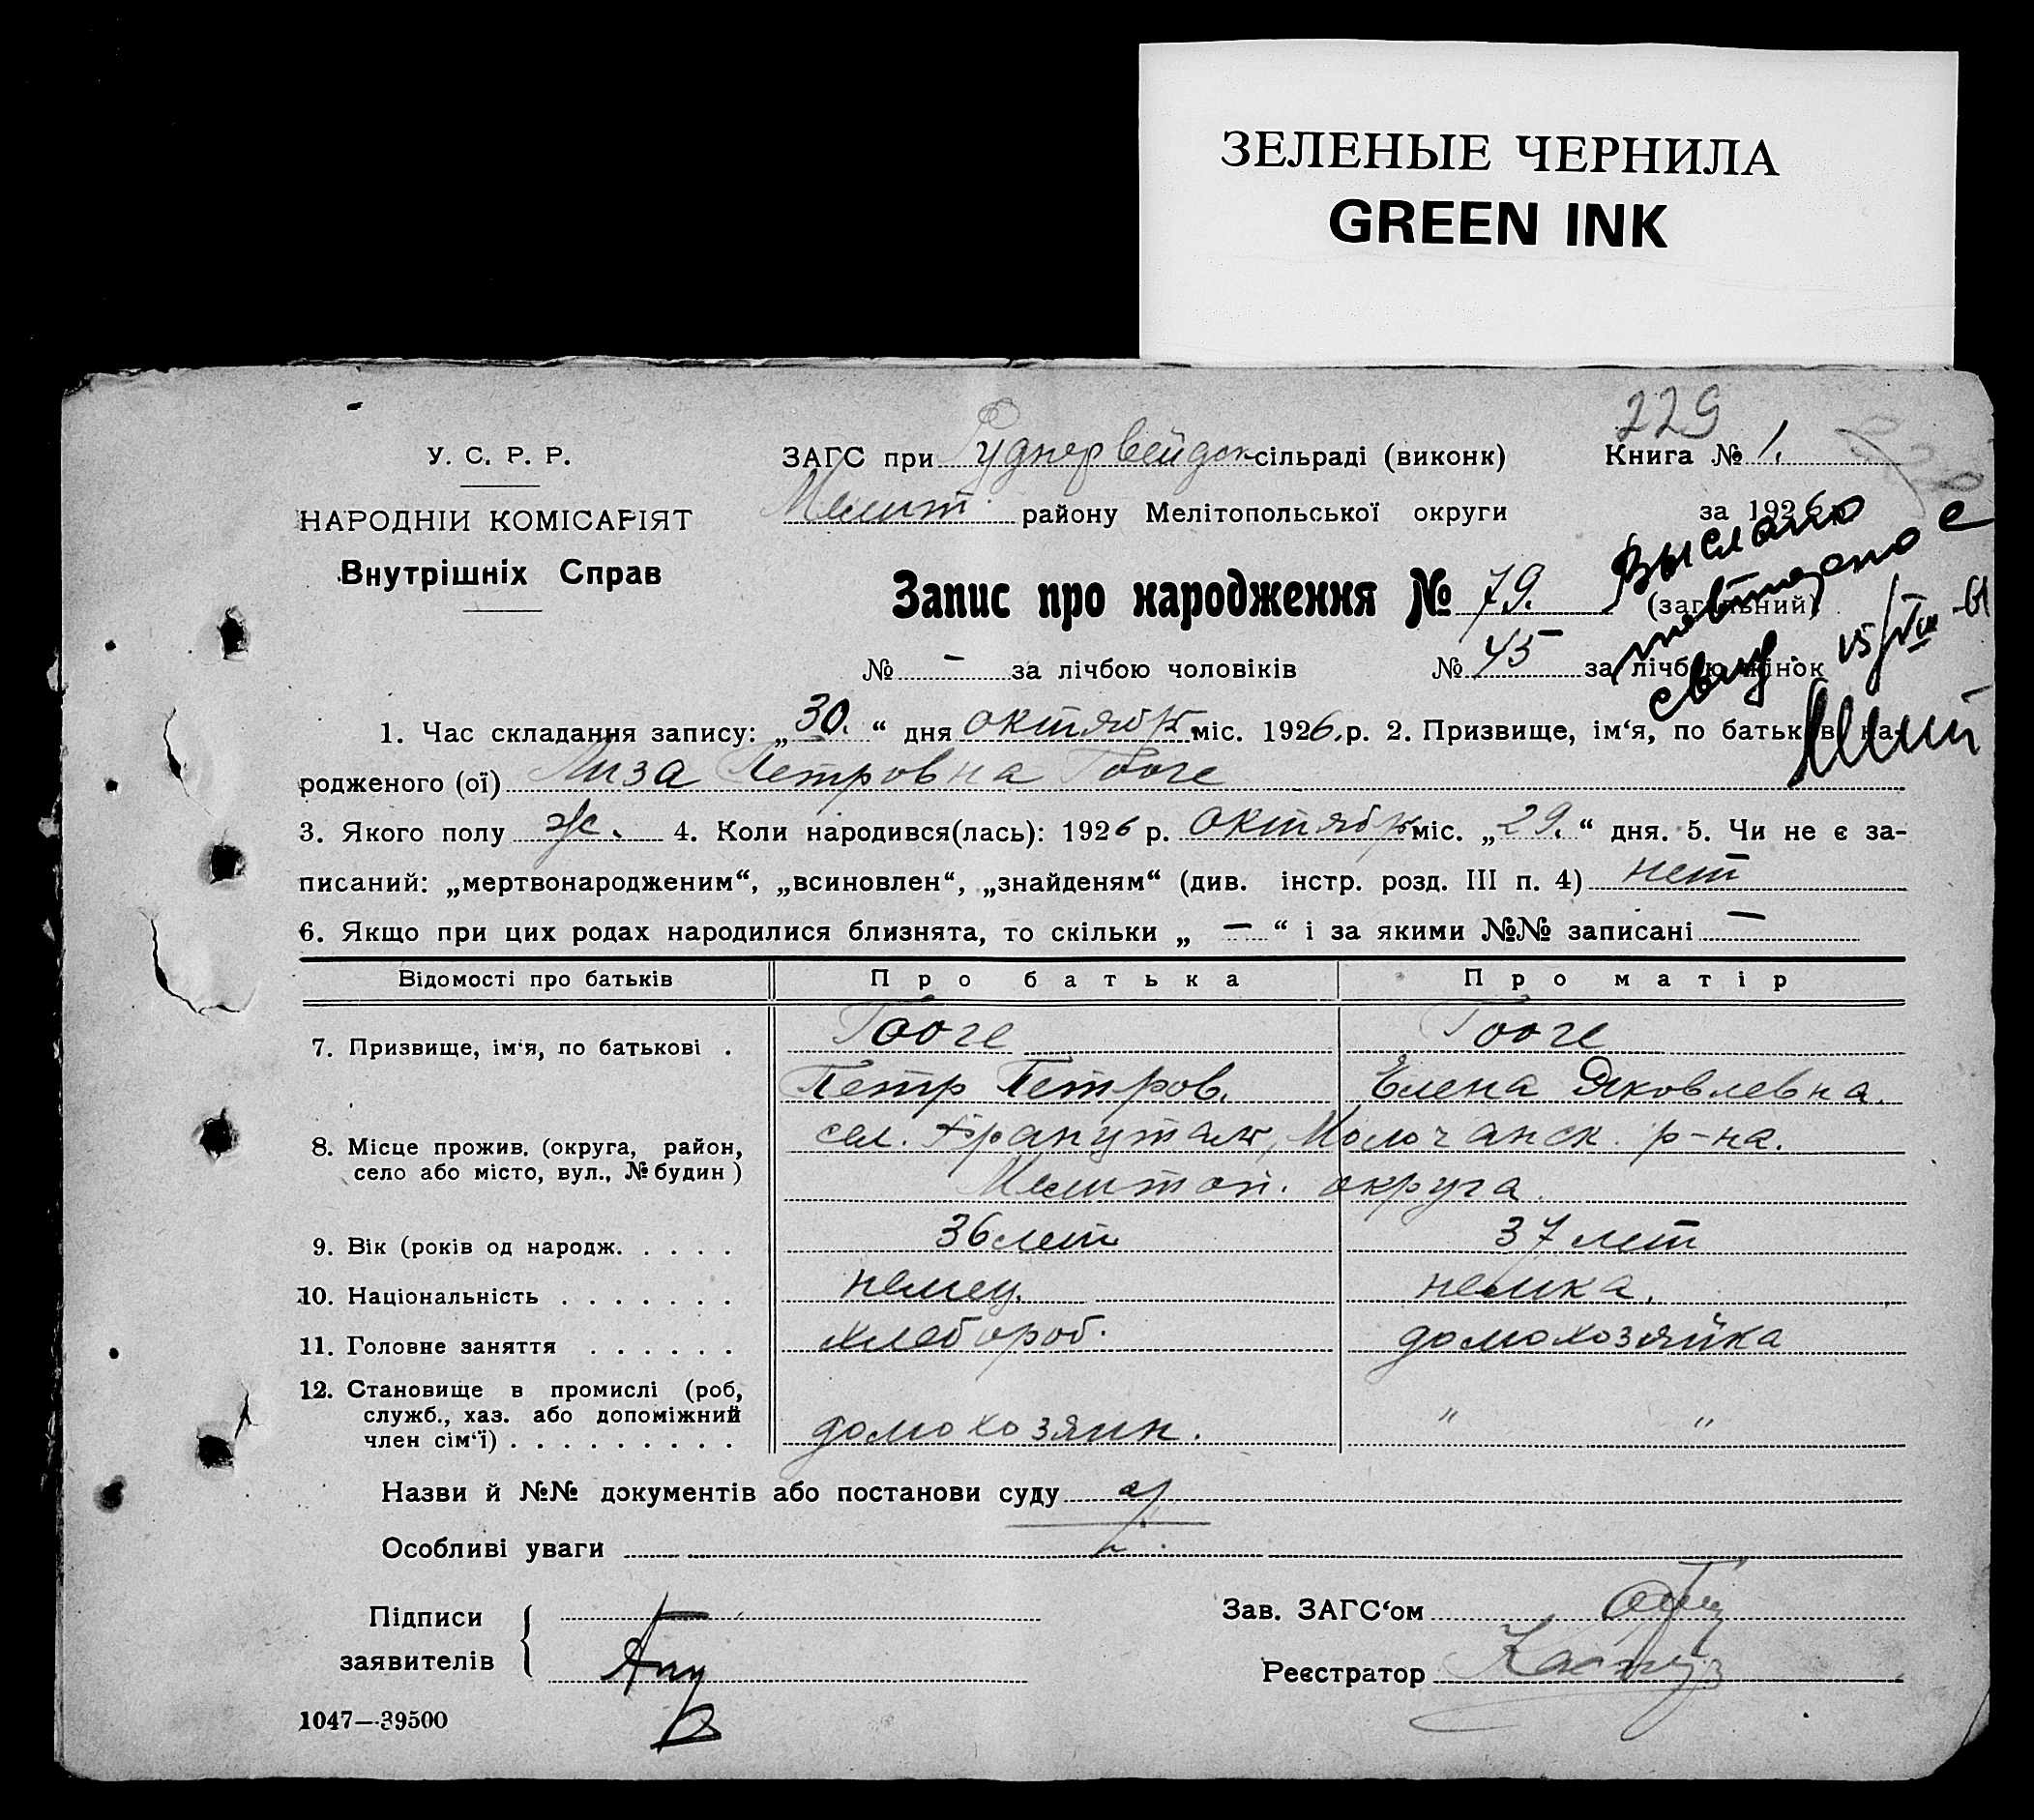 ЗЕЛЕНЫЕ ЧЕРНИЛА
GREEN INK
229
У. С. Р. Р.
ЗАГС при Руднервейдск сільраді (виконк)
Книга № 1.
НАРОДНІИ КОМІСАРІЯТ
Мелит. району Мелітопольської округи
за 1926
Внутрішніх Справ
Выслано повторное свид. 15/VIII-61
Запис про народження № 79. (загальний)
№ — за лічбою чоловіків № 45 за лічбою жінок
1. Час складання запису: „30.“ дня октября міс. 1926 р. 2. Призвище, ім‘я, по батькові на-
родженого (ої) Лиза Петровна Тооге
3. Якого полу ж. 4. Коли народився(лась): 1926 р. октября міс. „29.“ дня. 5. Чи не є за-
писаний: „мертвонародженим“, „всиновлен“, „знайденям“ (див. інстр. розд. III п. 4) нет
6. Якщо при цих родах народилися близнята, то скільки „ — “ і за якими №№ записані —
Відомості про батьків Про батька Про матір
7. Призвище, ім‘я, по батькові . Тооге Тооге
Петр Петров. Елена Яковлевна.
8. Місце прожив. (округа, район, сел. Франуталь, Молочанск. р-на.
село або місто, вул., № будин) Мелитоп. округа.
9. Вік (років од народж. . . . . 36 лет 37 лет
10. Національність . . . . . . . немец. немка.
11. Головне заняття . . . . . . хлебороб. домохозяйка
12. Становище в промислі (роб,
служб., хаз. або допоміжний
член сім‘ї) . . . . . . . . . домохозяин. " "
Назви й №№ документів або постанови суду
Особливі уваги
Підписи
заявителів
Зав. ЗАГС‘ом
Реєстратор
1047—39500